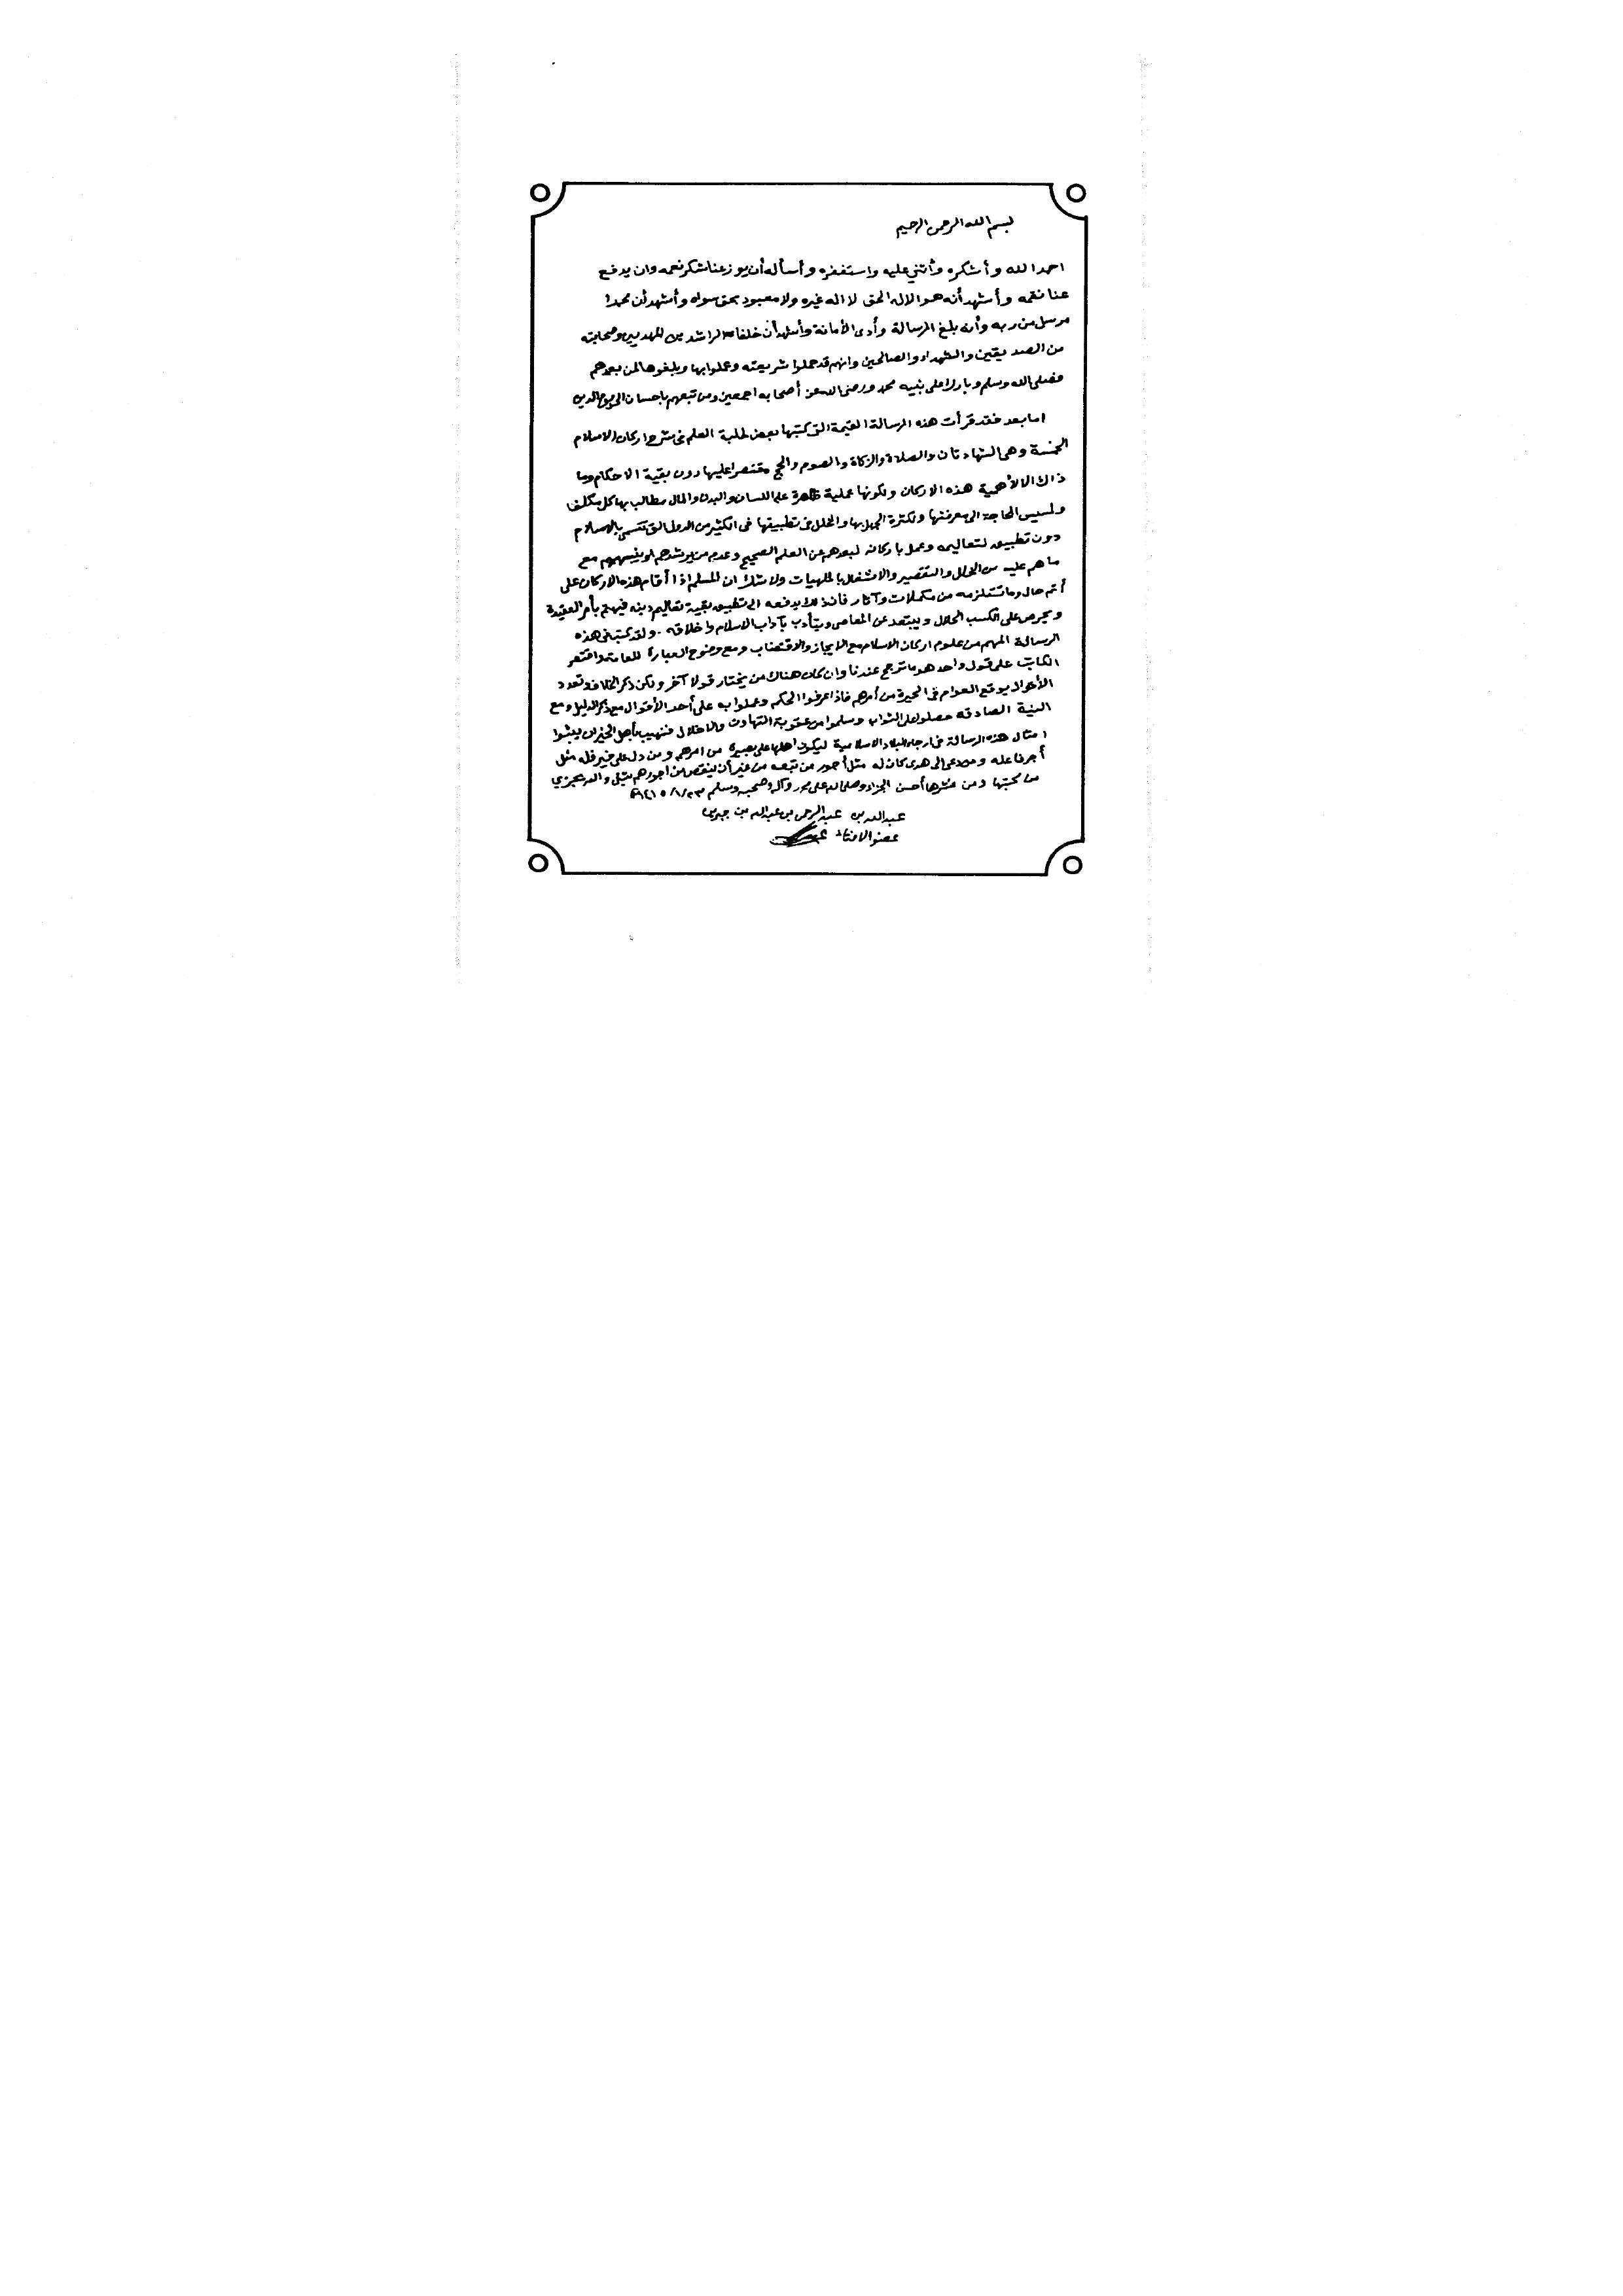 بسم الله الرحمن الرحيم
احمد الله وأشكره وأثني عليه واستغفره وأسأله أن يوزعنا شكر نعمه وان يدفع
عنا نقمه وأشهد أنه هو الاله الحق لا اله غيره ولا معبود بحق سواه وأشهد أن محمدا
مرسل من ربه وأنه بلغ الرسالة وأدى الأمانة وأشهد أن خلفاءه الراشدين المهديين وصحابته
من الصديقين والشهداء والصالحين وانهم قد حملوا شريعته وعملوا بها وبلغوها لمن بعدهم
فصلى الله وسلم وبارك على نبيه محمد ورضى الله عن أصحابه اجمعين ومن تبعهم باحسان الى يوم الدين
اما بعد فقد قرأت هذه الرسالة القيمة التى كتبها بعض طلبة العلم فى شرح اركان الاسلام
الخمسة وهى الشهادتان والصلاة والزكاة والصوم والحج مقتصرا عليها دون بقية الاحكام وما
ذاك الا لأهمية هذه الاركان ولكونها عملية ظاهرة على اللسان والبدن والمال مطالب بها كل مكلف
ولمسيس الحاجة الى معرفتها ولكثرة الجهل بها والخلل فى تطبيقها فى الكثير من الدول التى تتسمى بالاسلام
دون تطبيق لتعاليمه وعمل باركانه لبعدهم عن العلم الصحيح وعدم من يرشدهم او ينبههم مع
ما هم عليه من الخلل والتقصير والانشغال بالملهيات ولا شك ان المسلم اذا أقام هذه الاركان على
أتم حال وما تستلزمه من مكملات وآثار فانذلك يدفعه الى تطبيق بقية تعاليم دينه فيهتم بأمر العقيدة
ويحرص على الكسب الحلال ويبتعد عن المعاصى ويتأدب بآداب الاسلام واخلاقه . ولقد كتب فى هذه
الرسالة المهم من علوم اركان الاسلام مع الايجاز والاقتضاب ومع وضوح العبارة للعامة واقتصر
الكاتب على قول واحد هو ما ترجح عندنا وان كان هناك من يختار قولا آخر ولكن ذكر الخلاف وتعدد
الأقوال يوقع العوام فى الحيرة من أمرهم فاذا عرفوا الحكم وعملوا به على أحد الأقوال مع ذكر الدليل ومع
النية الصادقه حصلوا على الثواب وسلموا من عقوبة التهاون والاخلال فنهيب بأهل الخير ان يبثوا
امثال هذه الرسالة فى ارجاء البلاد الاسلامية ليكون اهلها على بصيرة من امرهم ومن دل على خير فله مثل
أجر فاعله ومن دعى الى هدى كان له مثل أجور من تبعه من غير أن ينقص من اجورهم شيئ والله يجزي
من كتبها ومن نشرها أحسن الجزاء وصلى الله على محمد وآله وصحبه وسلم ٢٣/١/١٤١٥هـ
عبدالله بن عبدالرحمن بن عبدالله بن جبرين
عضو الافتاء